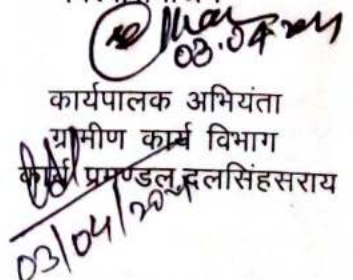 03.04
कार्यपालक अभियंता
ग्रामीण कार्य विभाग
कार्य प्रमण्डल, दलसिंहसराय
03/04/